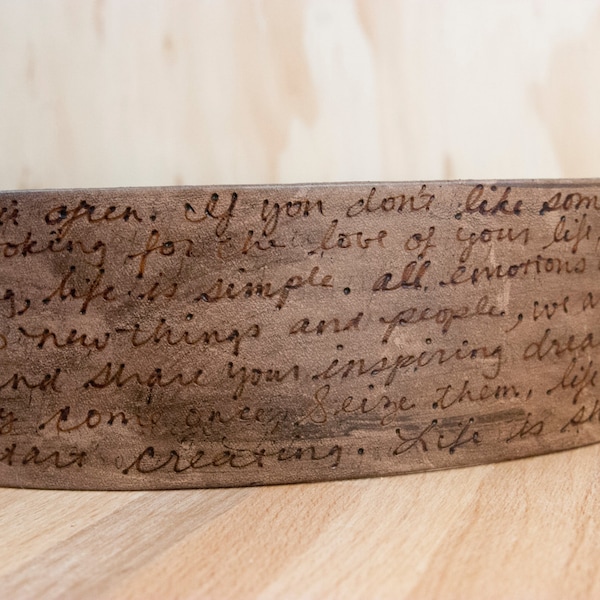 open. If you don't like som
oking for the love of your life,
g, life is simple. all emotions
new things and people, we a
and share your inspiring drea
come once, Seize them, life
tart creating. Life is sh